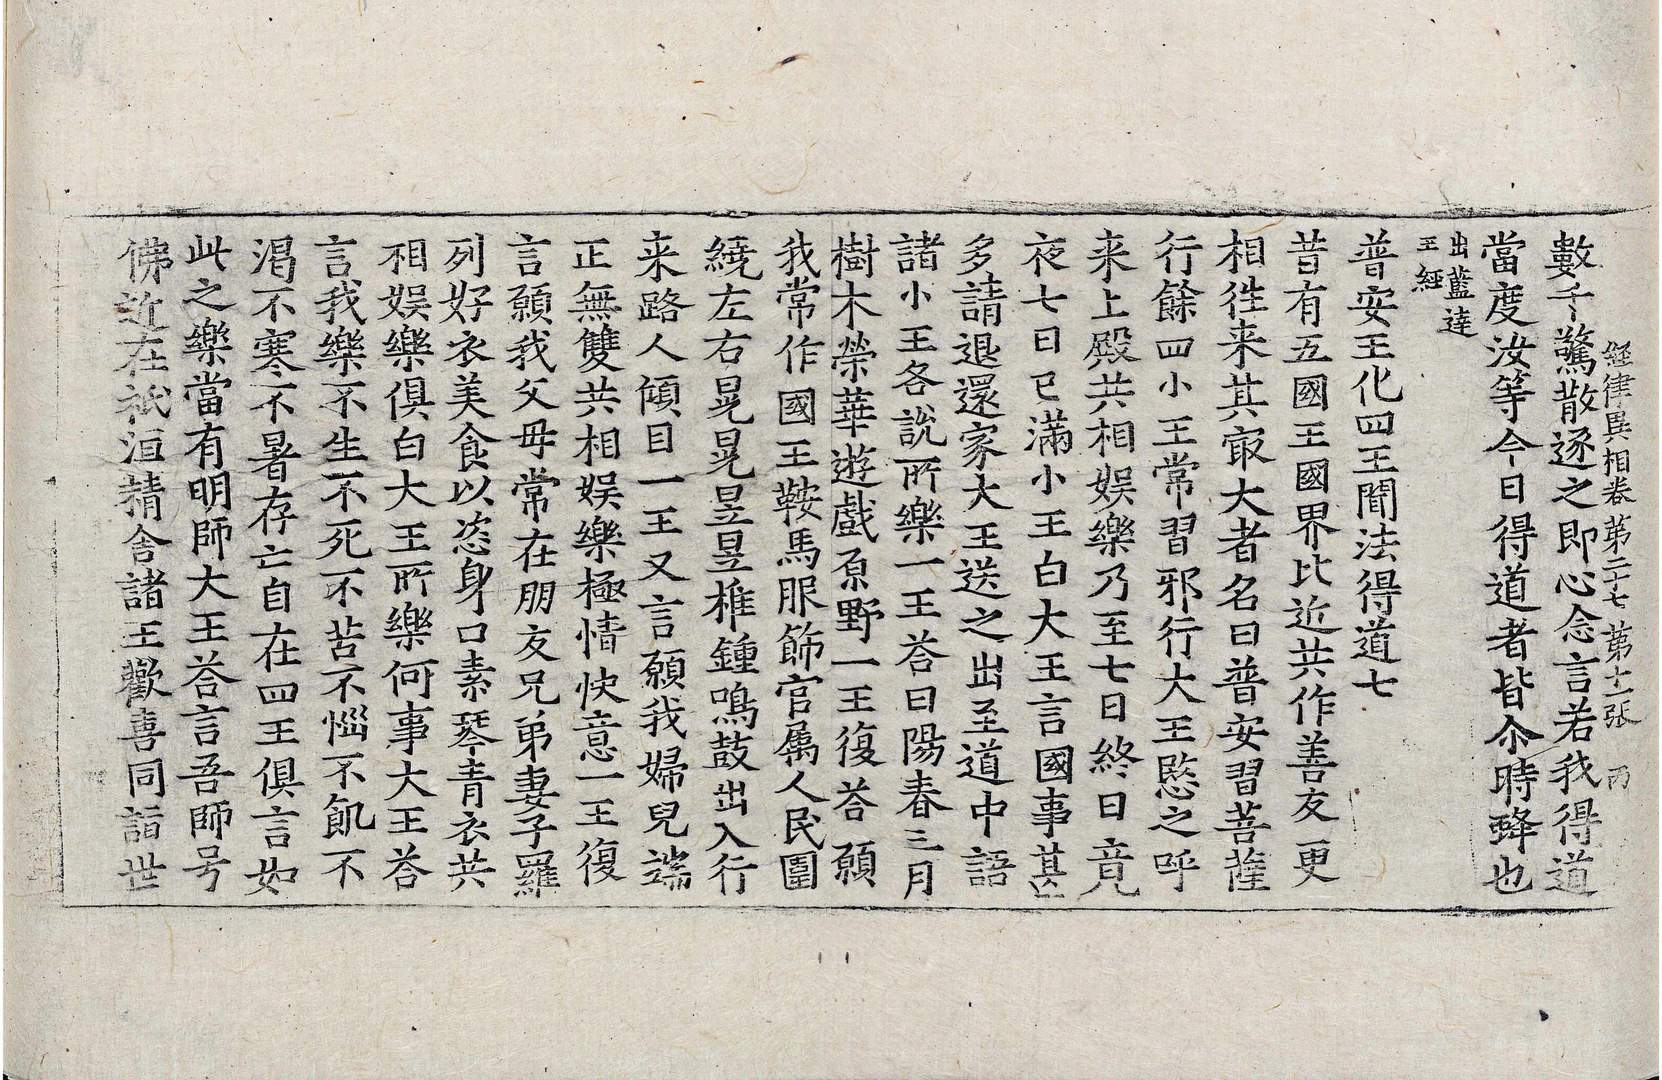 經律異相卷第二十七 第十二張 丙
數千驚散逐之即心念言若我得道
當度汝等今日得道者皆尒時蜂也
出藍達
王經
普安王化四王聞法得道七
昔有五國王國界比近共作善友更
相徃来其㝡大者名曰普安習菩薩
行餘四小王常習邪行大王愍之呼
来上殿共相娛樂乃至七日終日竟
夜七日已滿小王白大王言國事甚
多請退還家大王送之出至道中語
諸小王各說所樂一王荅曰陽春三月
樹木榮華遊戲原野一王復荅願
我常作國王鞍馬服飾官属人民圍
繞左右晃晃昱昱椎鍾鳴鼓出入行
来路人傾目一王又言願我婦兒端
正無雙共相娛樂極情快意一王復
言願我父母常在朋友兄弟妻子羅
列好衣美食以恣身口素琴青衣共
相娛樂俱白大王所樂何事大王荅
言我樂不生不死不苦不惱不飢不
渴不寒不暑存亡自在四王俱言如
此之樂當有明師大王荅言吾師号
佛近在祇洹精舍諸王歡喜同詣世